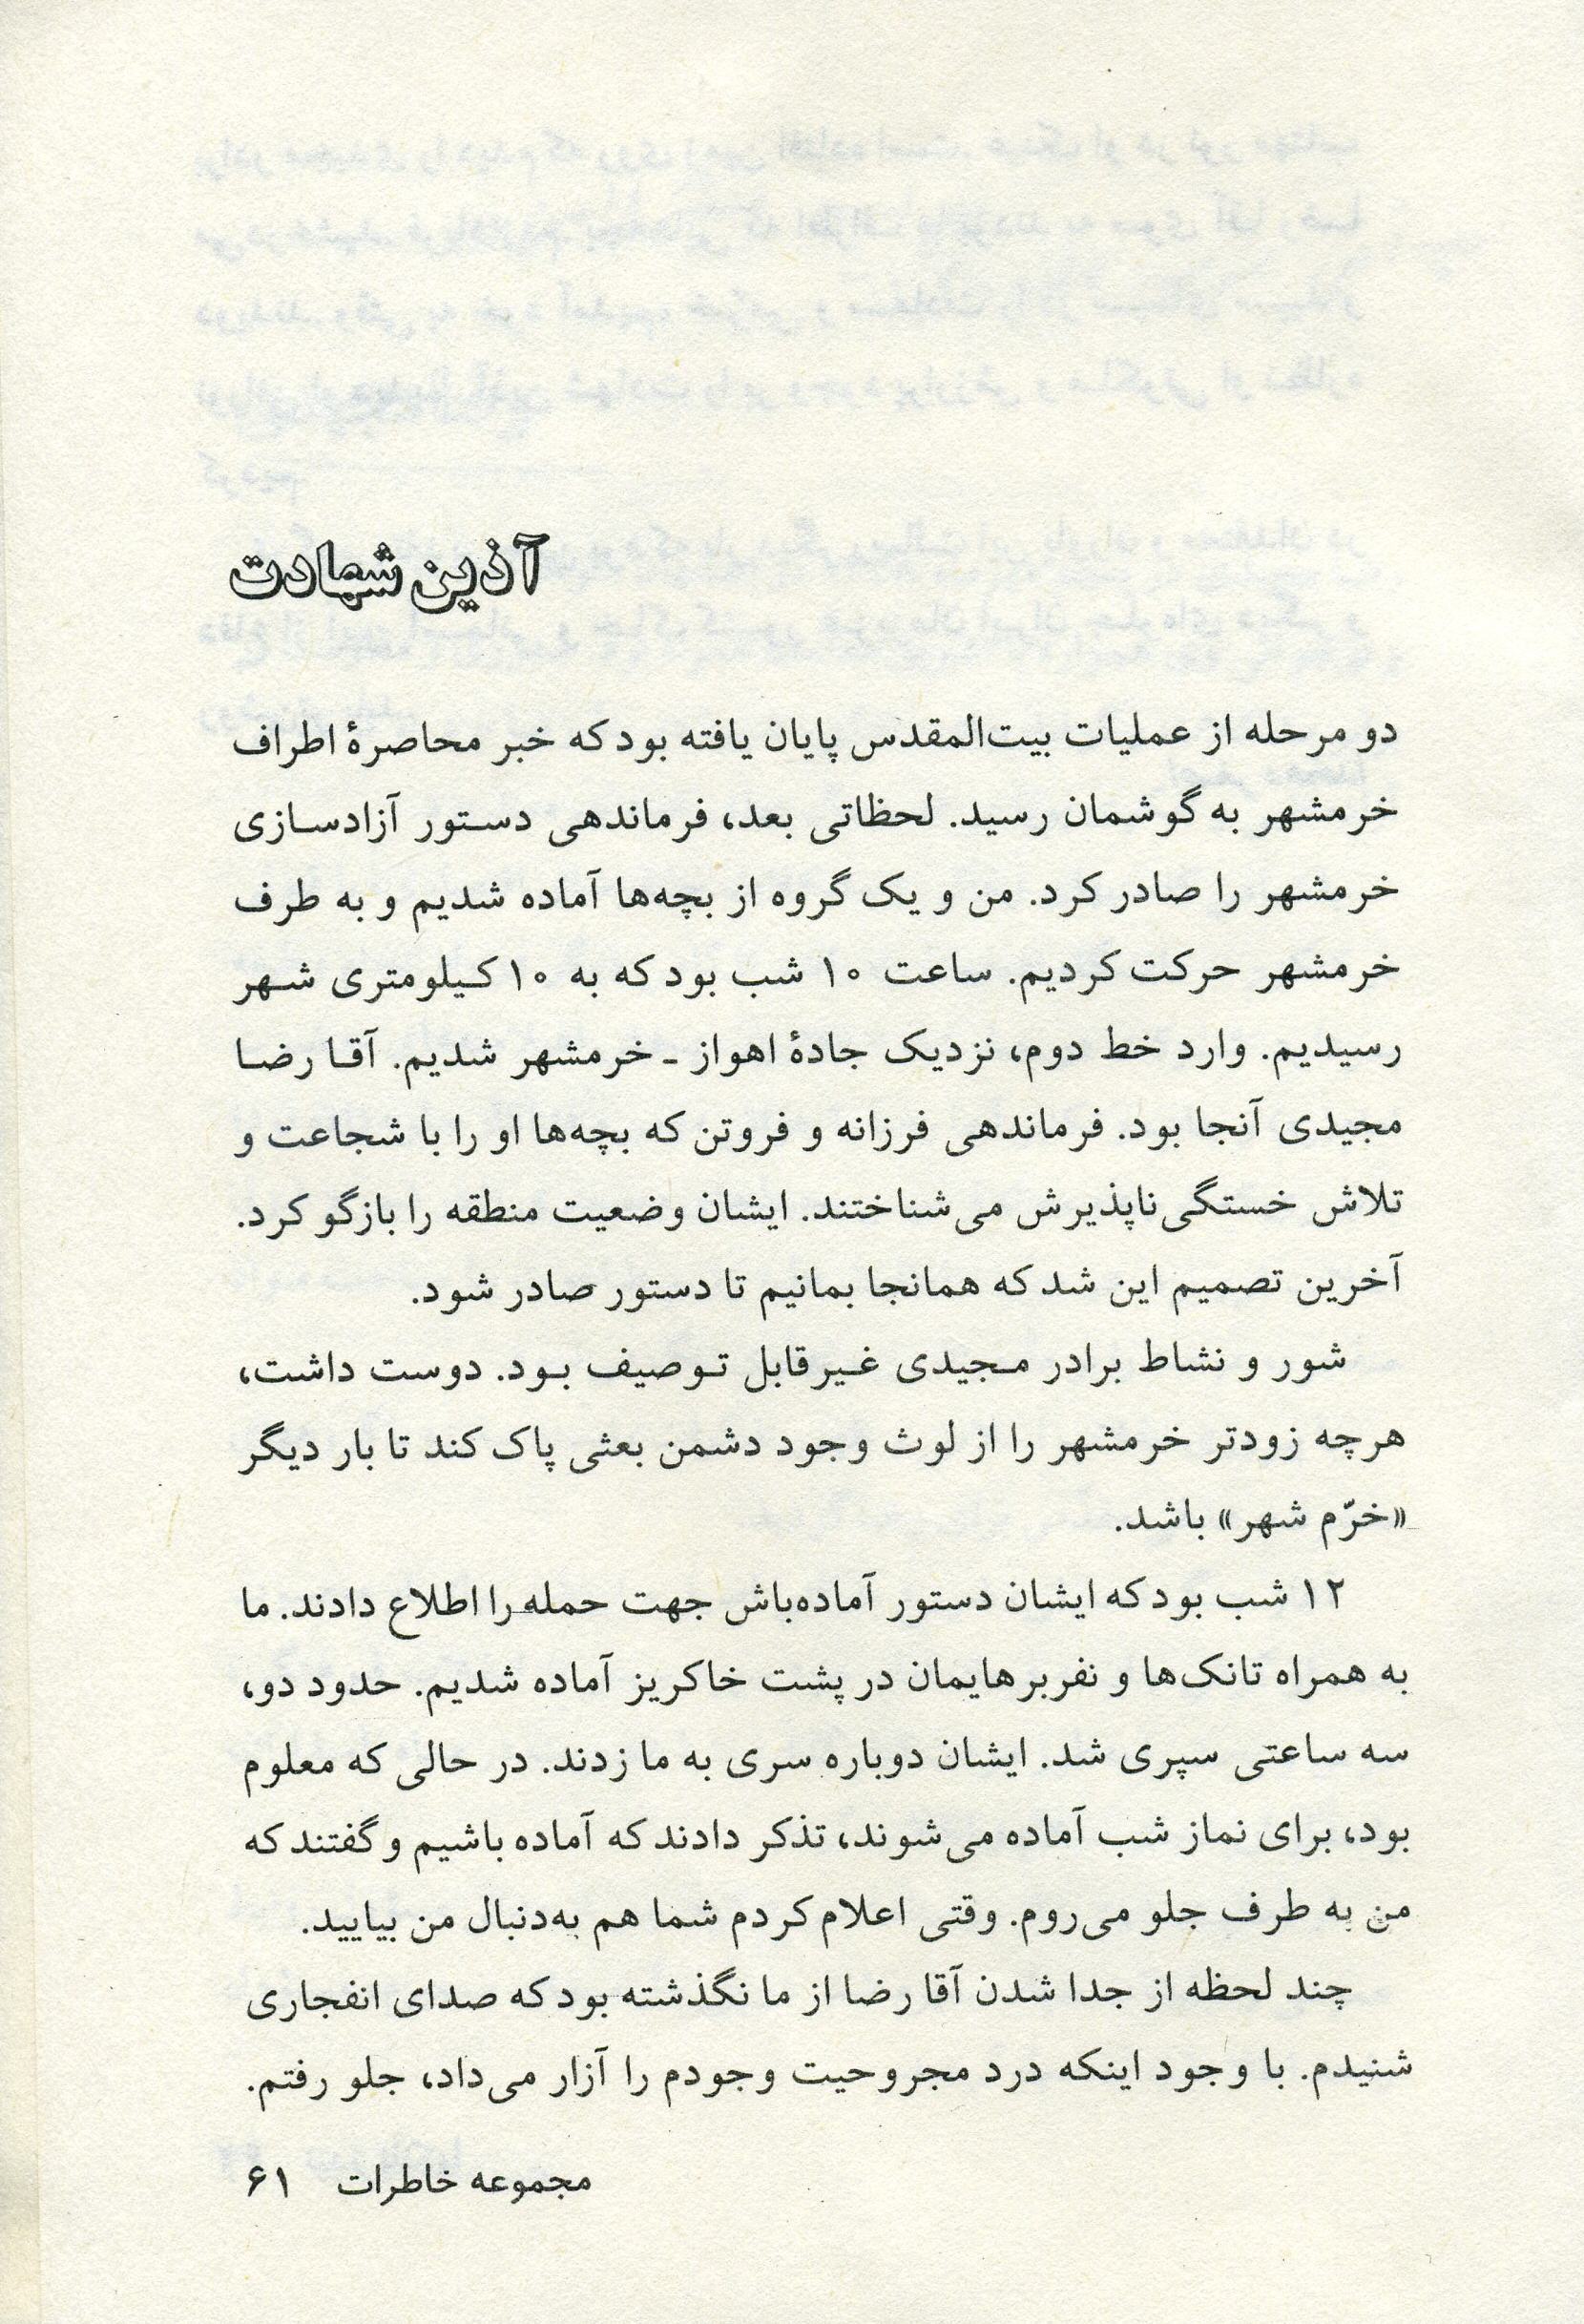 آذین شهادت
دو مرحله از عملیات بیت‌المقدس پایان یافته بود که خبر محاصرهٔ اطراف
خرمشهر به گوشمان رسید. لحظاتی بعد، فرماندهی دستور آزادسازی
خرمشهر را صادر کرد. من و یک گروه از بچه‌ها آماده شدیم و به طرف
خرمشهر حرکت کردیم. ساعت ۱۰ شب بود که به ۱۰ کیلومتری شهر
رسیدیم. وارد خط دوم، نزدیک جادهٔ اهواز ـ خرمشهر شدیم. آقا رضا
مجیدی آنجا بود. فرماندهی فرزانه و فروتن که بچه‌ها او را با شجاعت و
تلاش خستگی‌ناپذیرش می‌شناختند. ایشان وضعیت منطقه را بازگو کرد.
آخرین تصمیم این شد که همانجا بمانیم تا دستور صادر شود.
شور و نشاط برادر مجیدی غیرقابل توصیف بود. دوست داشت،
هرچه زودتر خرمشهر را از لوث وجود دشمن بعثی پاک کند تا بار دیگر
«خرّم شهر» باشد.
۱۲ شب بود که ایشان دستور آماده‌باش جهت حمله را اطلاع دادند. ما
به همراه تانک‌ها و نفربرهایمان در پشت خاکریز آماده شدیم. حدود دو،
سه ساعتی سپری شد. ایشان دوباره سری به ما زدند. در حالی که معلوم
بود، برای نماز شب آماده می‌شوند، تذکر دادند که آماده باشیم و گفتند که
من به طرف جلو می‌روم. وقتی اعلام کردم شما هم به‌دنبال من بیایید.
چند لحظه از جدا شدن آقا رضا از ما نگذشته بود که صدای انفجاری
شنیدم. با وجود اینکه درد مجروحیت وجودم را آزار می‌داد، جلو رفتم.
مجموعه خاطرات ۶۱